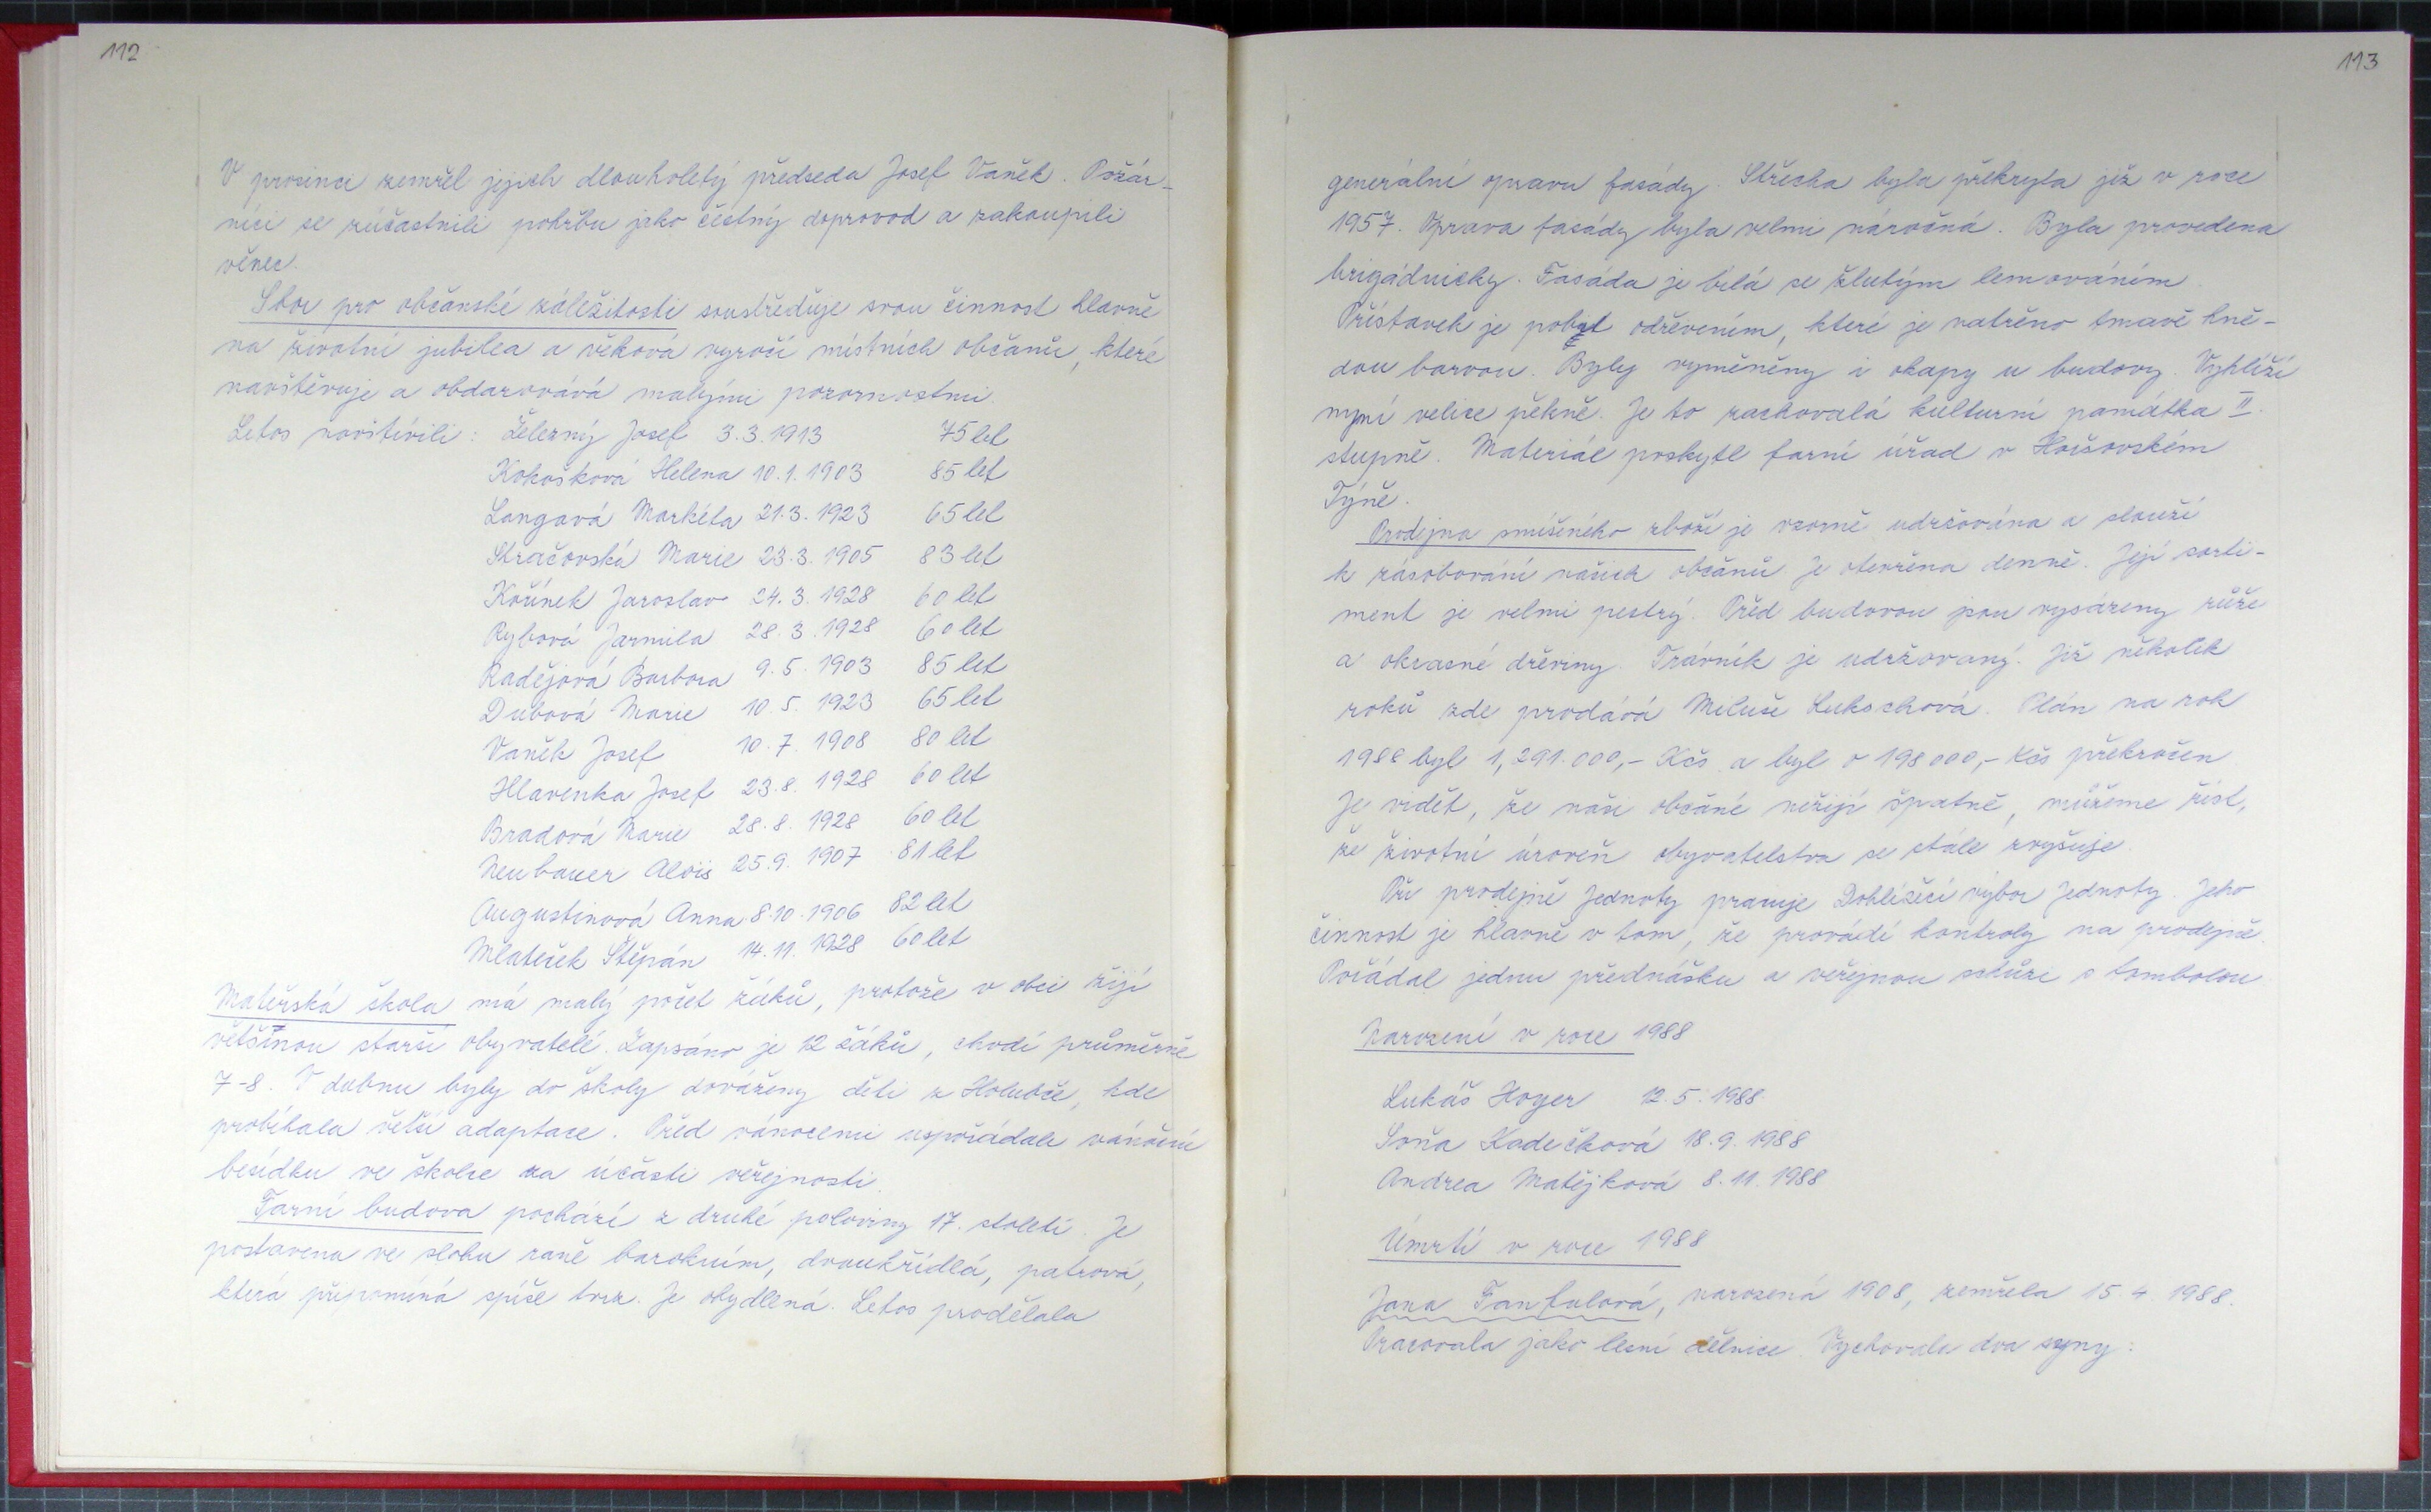 112
V prosinci zemřel jejich dlouholetý předseda Josef Vaněk. Požár-
níci se zúčastnili pohřbu jako čestný doprovod a zakoupili
věnec.
Sbor pro občanské záležitosti soustřeďuje svou činnost hlavně
na životní jubilea a věková vyročí místních občanů, které
navštěvuje a obdarovává malými pozornostmi.
Letos navštívili: Železný Josef 3.3.1913 75 let
Kokošková Helena 10.1.1903 85 let
Langová Markéta 21.3.1923 65 let
Stračovská Marie 23.3.1905 83 let
Kořínek Jaroslav 24.3.1928 60 let
Rybová Jarmila 28.3.1928 60 let
Radějová Barbora 9.5.1903 85 let
Dubová Marie 10.5.1923 65 let
Vaněk Josef 10.7.1908 80 let
Hlavenka Josef 23.8.1928 60 let
Bradová Marie 28.8.1928 60 let
Neubauer Alois 25.9.1907 81 let
Augustinová Anna 8.10.1906 82 let
Mlateček Štěpán 14.11.1928 60 let
Mateřská škola má malý počet žáků, protože v obci žijí
většinou starší obyvatelé. Zapsáno je 12 žáků, chodí průměrně
7-8. V dubnu byly do školy dováženy děti z Holubče, kde
probíhala větší adaptace. Před vánocemi uspořádali vánoční
besídku ve školce za účasti veřejnosti.
Farní budova pochází z druhé poloviny 17. století. Je
postavena ve slohu raně barokním, dvoukřídlá, patrová,
která připomíná spíše tvrz. Je obydlená. Letos prodělala
113
generální opravu fasády. Střecha byla překryta již v roce
1957. Oprava fasády byla velmi náročná. Byla provedena
brigádnicky. Fasáda je bílá se žlutým lemováním.
Přístavek je pobit odřevením, které je natřeno tmavě hně-
dou barvou. Byly vyměněny i okapy u budovy. Vyhlíží
nyní velice pěkně. Je to zachovalá kulturní památka II.
stupně. Materiál poskytl farní úřad v Horšovském
Týně.
Prodejna smíšeného zboží je vzorně udržována a slouží
k zásobování našich občanů. Je otevřena denně. Její sorti-
ment je velmi pestrý. Před budovou jsou vysázeny růže
a okrasné dřeviny. Trávník je udržovaný. Již několik
roků zde prodává Miluše Lukschová. Plán na rok
1988 byl 1,291.000,- Kčs a byl o 198 000,- Kčs překročen
Je vidět, že naši občané nežijí špatně, můžeme říst,
že životní úroveň obyvatelstva se stále zvyšuje.
Při prodejně Jednoty pracuje Dohlížecí výbor Jednoty. Jeho
činnost je hlavně v tom, že provádí kontroly na prodejně.
Pořádal jednu přednášku a veřejnou schůzi s tombolou
Narození v roce 1988
Lukáš Hoyer 12.5.1988
Soňa Kadečková 18.9.1988
Andrea Matějková 8.11.1988
Úmrtí v roce 1988
Jana Fanfulová, narozená 1908, zemřela 15.4.1988.
Pracovala jako lesní dělnice. Vychovala dva syny.